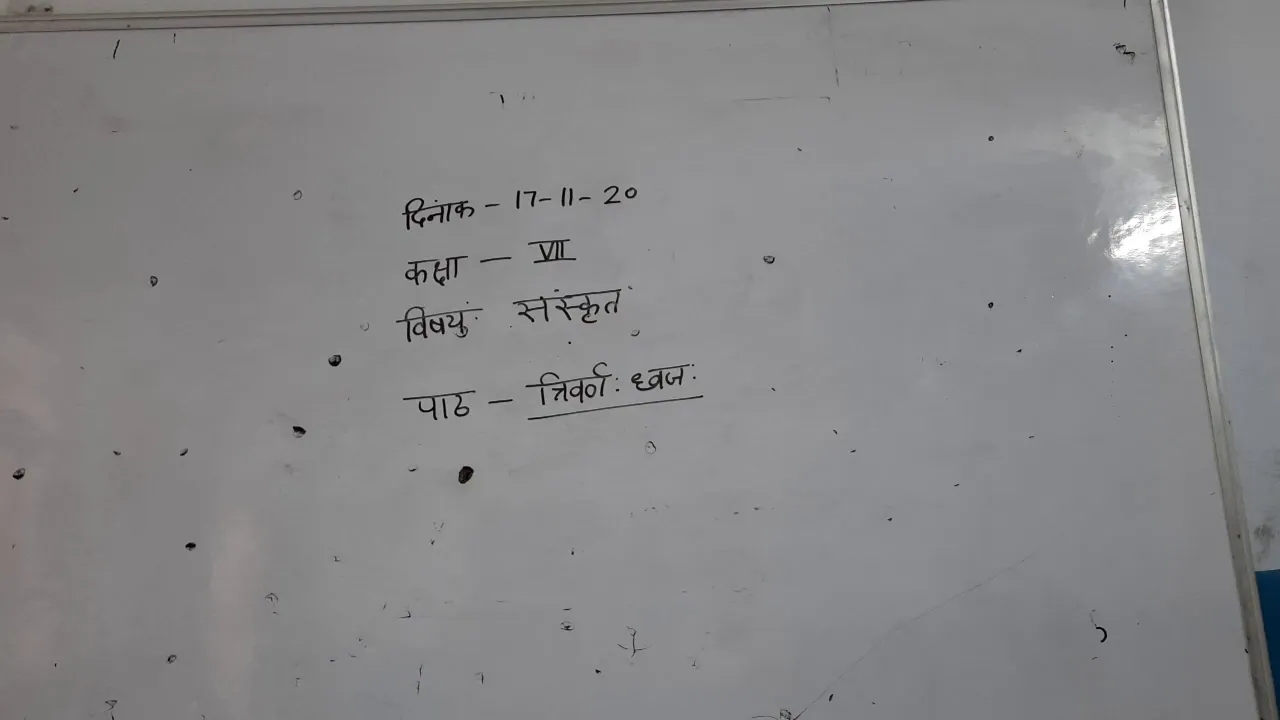 दिनांक - 17-11-20
कक्षा - VII
विषय: संस्कृत
पाठ - त्रिवर्ण: ध्वज: